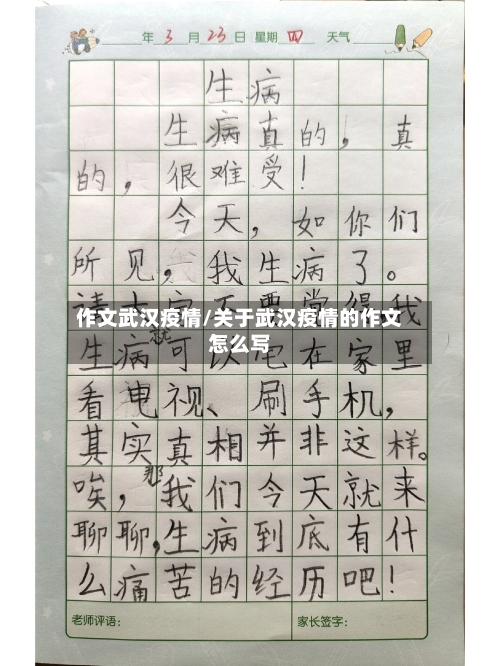 年 3 月 23 日 星期 四 天气
生病
生病真的，真
的，很难受！
今天，如你们
所见，我生病了。
作文武汉疫情/关于武汉疫情的作文
怎么写
生病就可以宅在家里
看电视、刷手机，
其实真相并非这样。
唉，那我们今天就来
聊聊，生病到底有什
么痛苦的经历吧！
老师评语： 家长签字：